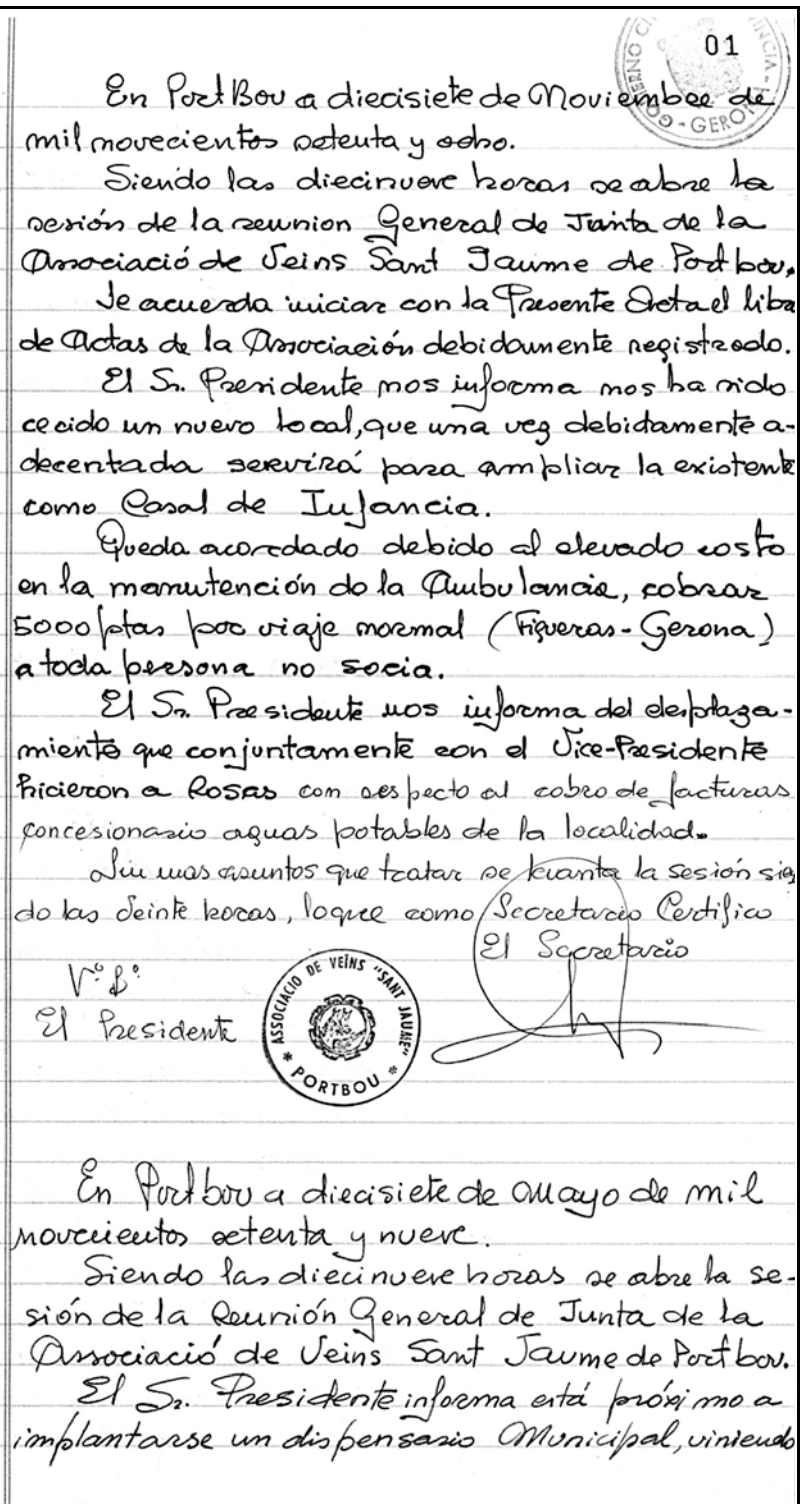 01
GOBIERNO CI
NCIA -
- GERON
En Port Bou a diecisiete de Noviembre de
mil novecientos setenta y ocho.
Siendo las diecinueve horas se abre la
sesión de la reunion General de Junta de la
Associació de Veins Sant Jaume de Portbou.
Se acuerda iniciar con la Presente Acta el libro
de Actas de la Associación debidamente registrado.
El Sr. Presidente nos informa nos ha sido
cecido un nuevo local, que una vez debidamente a-
decentada servirá para ampliar la existente
como Casal de Infancia.
Queda acordado debido al elevado costo
en la manutención de la Ambulancia, cobrar
5000 ptas por viaje normal (Figueras-Gerona)
a toda persona no socia.
El Sr. Presidente nos informa del desplaza-
miento que conjuntamente con el Vice-Presidente
hicieron a Rosas con respecto al cobro de facturas
concesionario aguas potables de la localidad.
Sin mas asuntos que tratar se levanta la sesión sien
do las Veinte horas, loque como Secretario Certifico
El Secretario
Vº Bº
El Presidente
ASSOCIACIO DE VEÏNS "SANT JAUME"
* PORTBOU *
En Portbou a diecisiete de Mayo de mil
novecientos setenta y nueve.
Siendo las diecinueve horas se abre la se-
sión de la Reunión General de Junta de la
Associació de Veins Sant Jaume de Portbou.
El Sr. Presidente informa está próximo a
implantarse un dispensario Municipal, viniendo